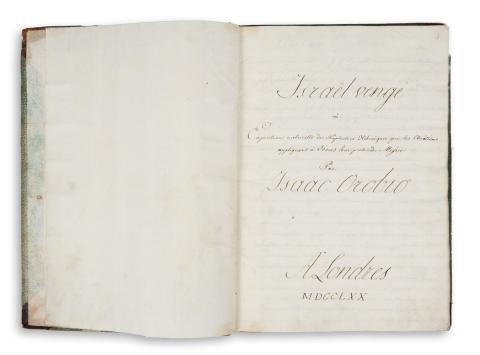 Israël vengé
ou
Exposition naturelle des Prophéties Hébraïques que les Chrétiens
appliquent à Jésus leur prétendu Messie
Par
Isaac Orobio
A Londres
MDCCLXX